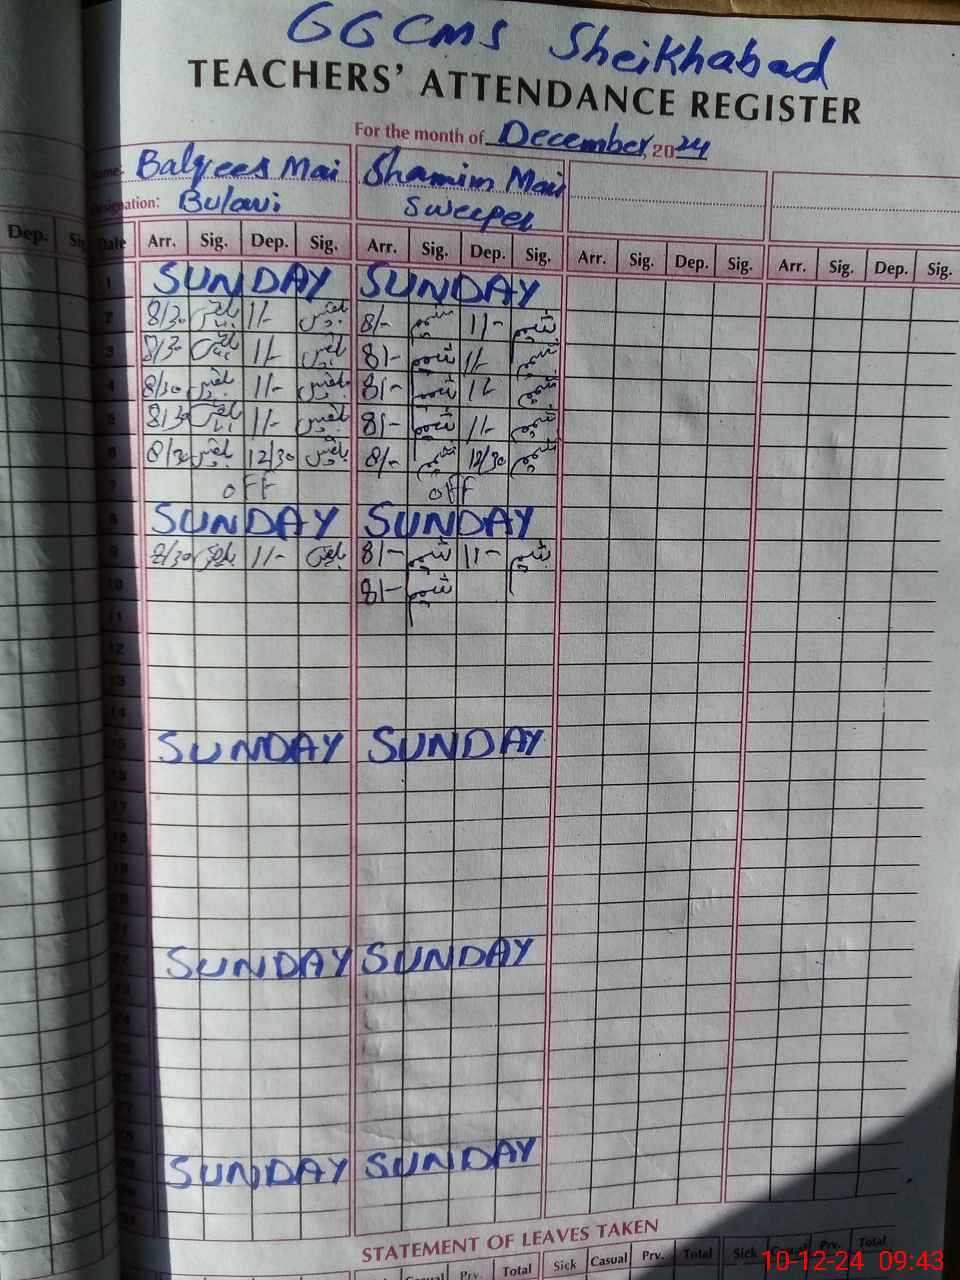 GGCMS Sheikhabad
TEACHERS' ATTENDANCE REGISTER
For the month of December, 2024
Name: Balqees Mai Shamim Mai
Designation: Bulawi Sweeper
Dep. Date Arr. Sig. Dep. Sig. Arr. Sig. Dep. Sig. Arr. Sig. Dep. Sig. Arr. Sig. Dep. Sig.
1 SUNDAY SUNDAY
2 8/30 بلقیس 11/- بلقیس 8/- شمیم 11- شمیم
3 8/30 بلقیس 11/- بلقیس 8/- شمیم 11/- شمیم
4 8/30 بلقیس 11/- بلقیس 8/- شمیم 11/- شمیم
5 8/30 بلقیس 11/- بلقیس 8/- شمیم 11/- شمیم
6 8/30 بلقیس 12/30 بلقیس 8/- شمیم 12/30 شمیم
7 off off
8 SUNDAY SUNDAY
9 8/30 بلقیس 11/- بلقیس 8/- شمیم 11- شمیم
10 8/- شمیم
11
12
13
14
15 SUNDAY SUNDAY
16
17
18
19
21
22 SUNDAY SUNDAY
SUNDAY SUNDAY
STATEMENT OF LEAVES TAKEN
Casual Prv. Total Sick Casual Prv. Total Sick Casual Prv. Total
10-12-24 09:43